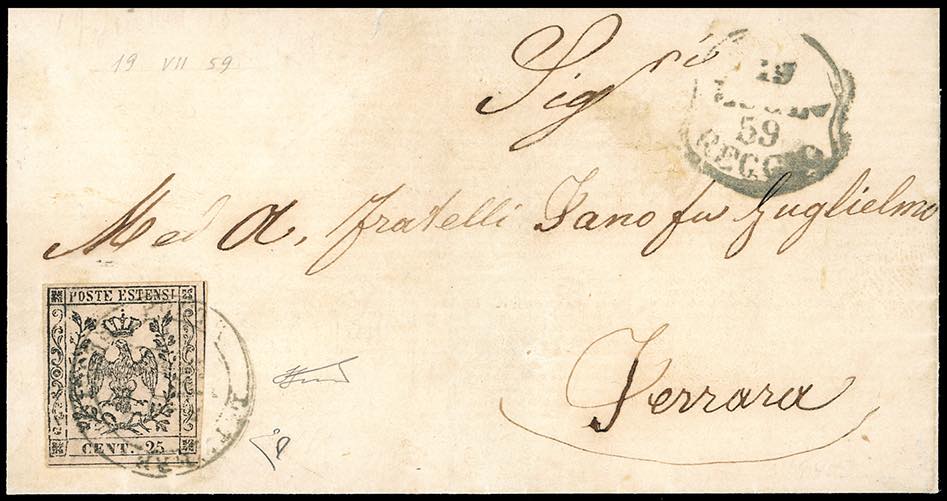 19 VII 59
Sig.ri
19
59
REGGIO
Med A. Fratelli Fano fu Guglielmo
POSTE ESTENSI
CENT. 25
Ferrara